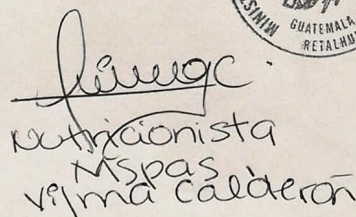 MINIST
GUATEMALA
RETALHU
Nutricionista
MSPAS
Vilma Calderón